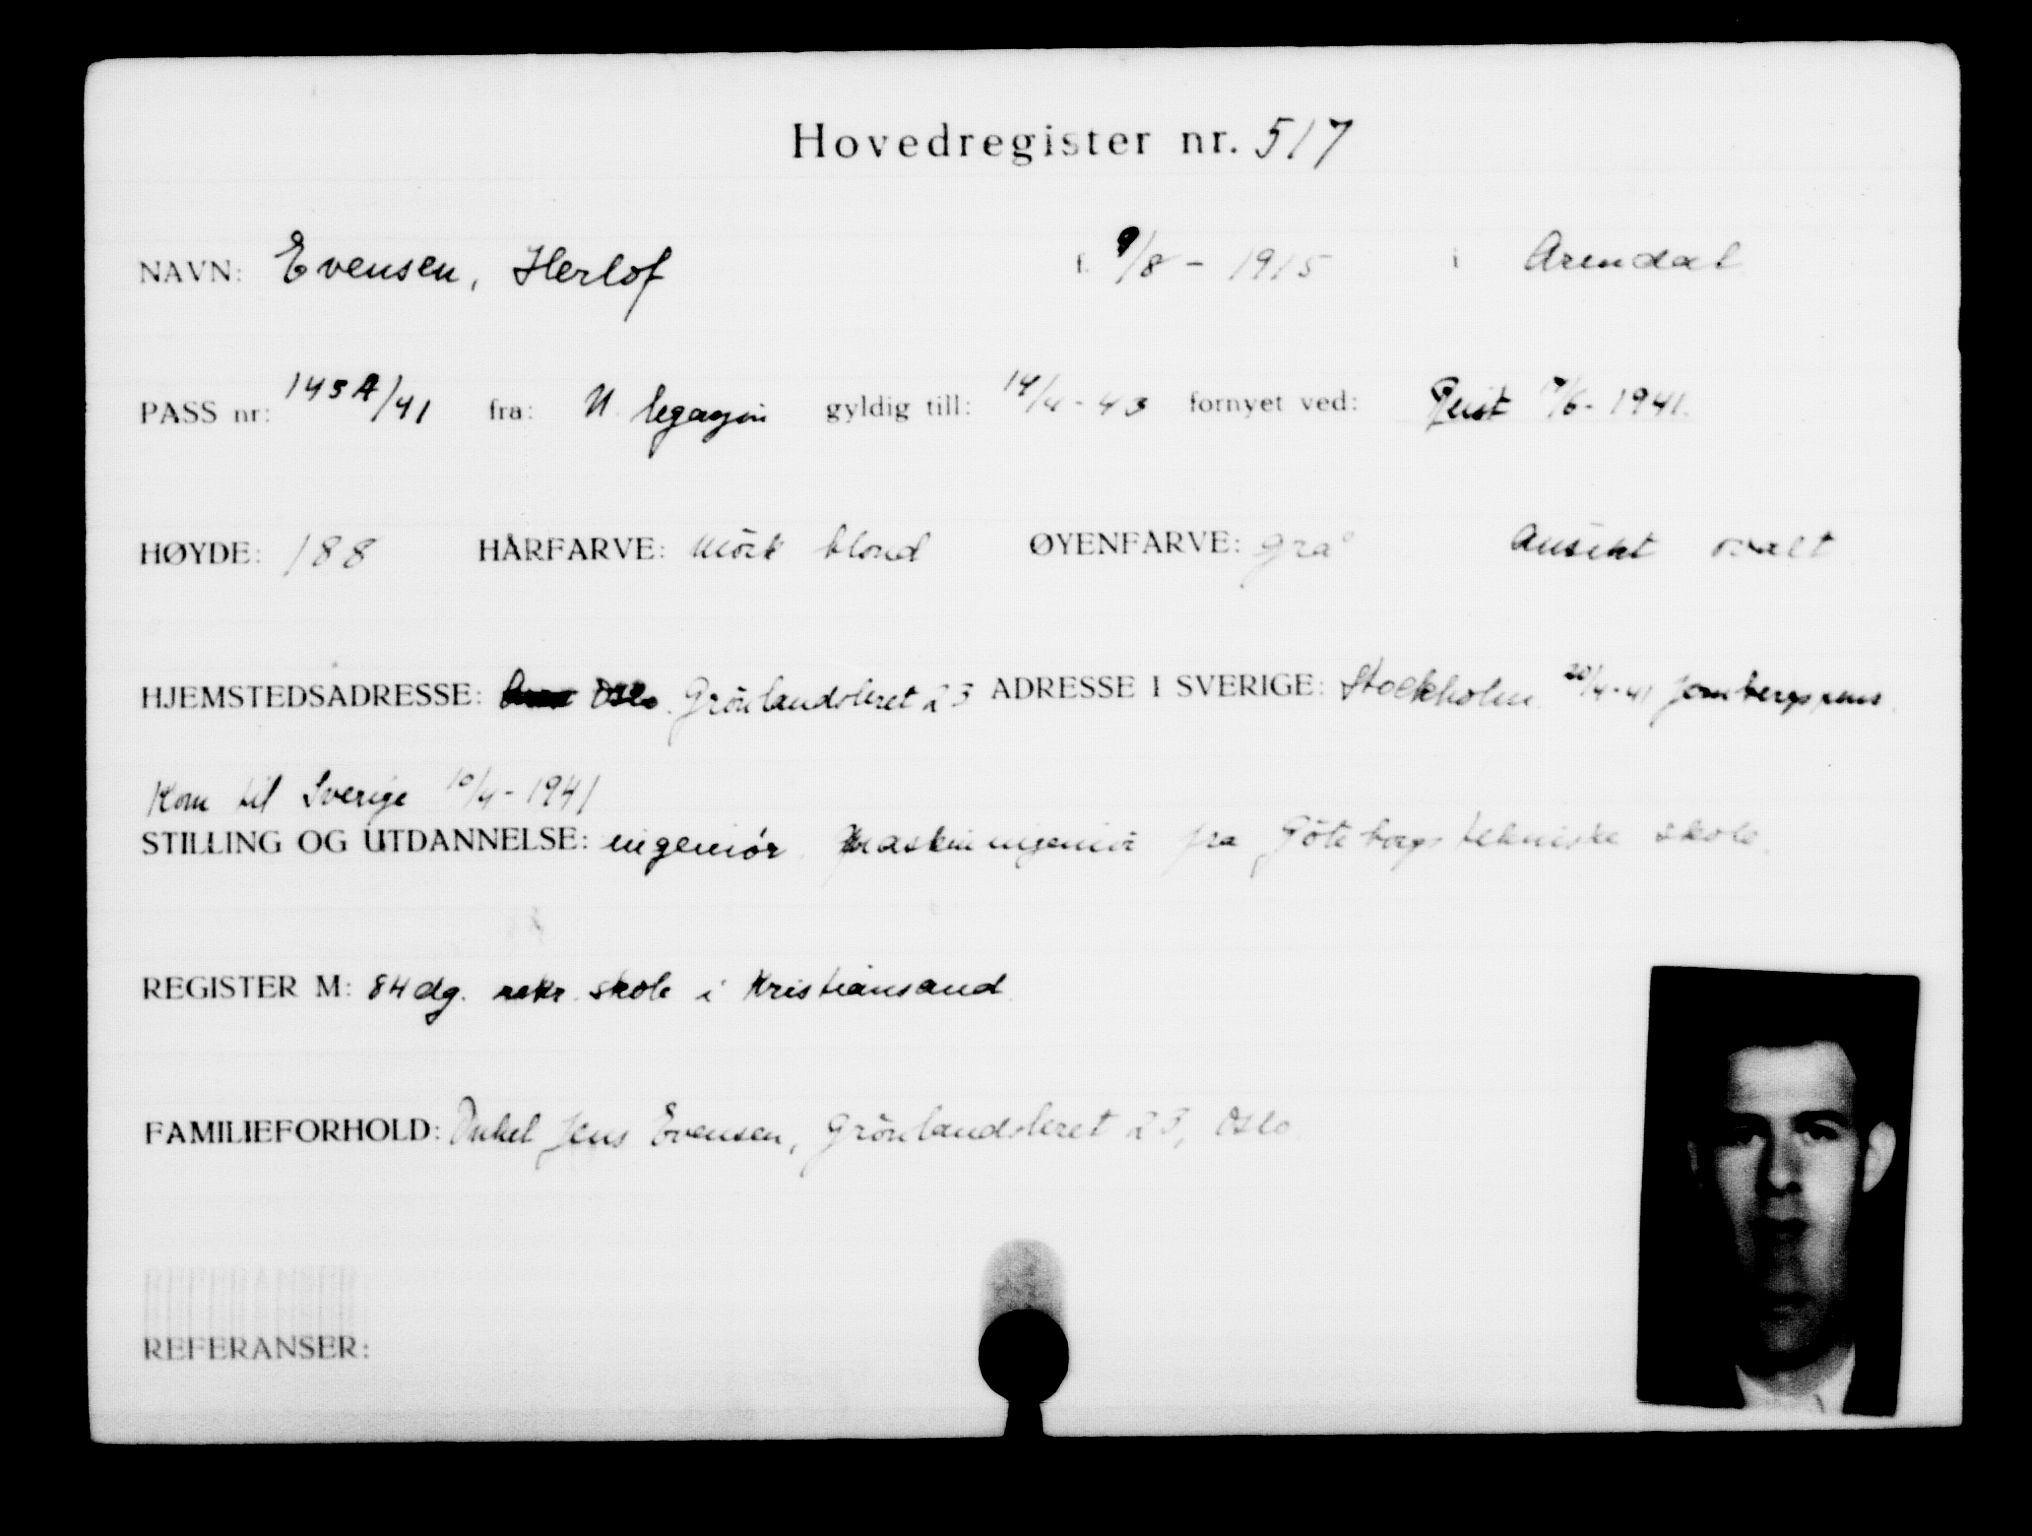 Hovedregister nr. 517
NAVN: Evensen, Herlof f. 9/8 - 1915 i Arendal
PASS nr: 145A/41 fra: N. legasjon gyldig till: 14/4 - 43 fornyet ved: Reist 17/6 - 1941.
HØYDE: 188 HÅRFARVE: mörk blond ØYENFARVE: grå Ansikt ovalt
HJEMSTEDSADRESSE: Oslo. Grönlandsleret 23 ADRESSE I SVERIGE: Stockholm 20/4-41 Jernbergs pens.
Kom til Sverige 10/4 - 1941
STILLING OG UTDANNELSE: ingeniör. Maskiningeniör fra Göteborgs tekniske skole.
REGISTER M: 84 dg. rekr. skole i Kristiansand.
FAMILIEFORHOLD: Onkel Jens Evensen, Grönlandsleret 23, Oslo.
REFERANSER: